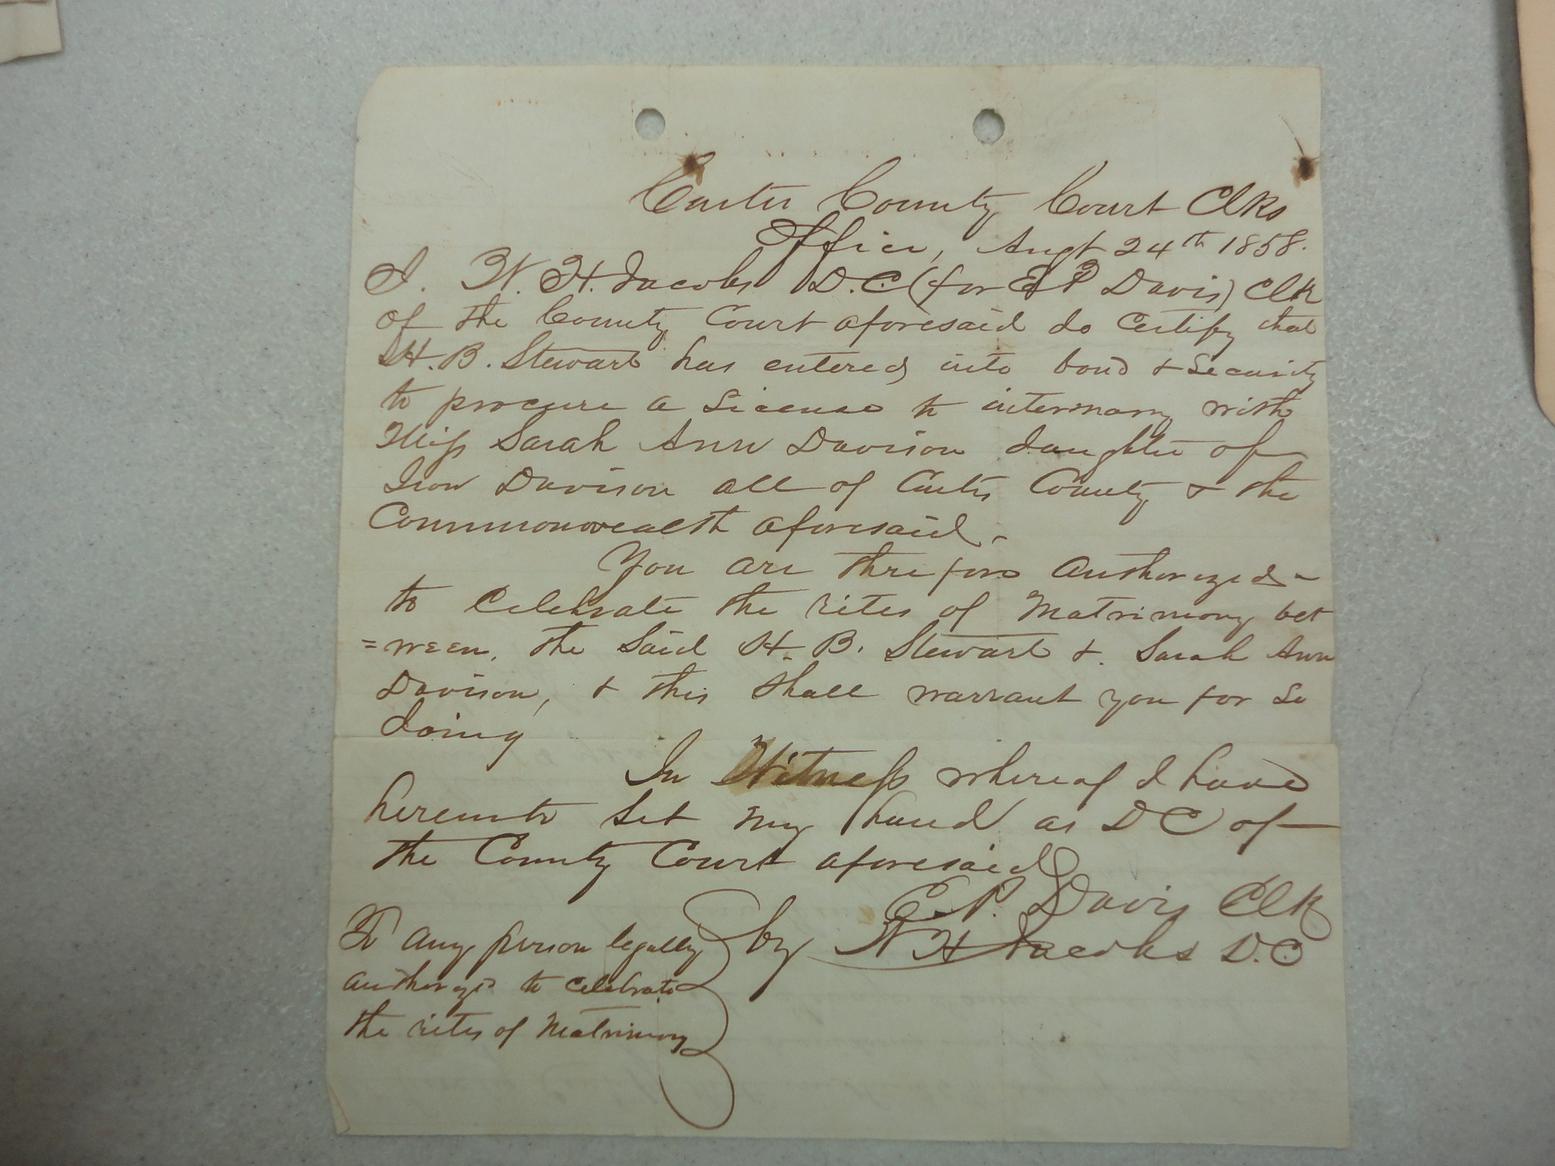 Carter County Court Clks
Office, Augt 24th 1858.
I. W. H. Jacobs D.C (for E P Davis) Clk
of the County Court aforesaid do Certify that
H. B. Stewart has entered into bond & Security
to procure a License to intermarry with
Miss Sarah Ann Davison daughter of
Davison all of Carter County & the
Commonwealth aforesaid.
You are threfore authorized
to Celebrate the rites of Matrimony bet
=ween, the Said H. B. Stewart &. Sarah Ann
Davison, & this Shall warrant you for So
doing
In Witness whereof I have
hereunto Set my hand as D C of
the County Court aforesaid
E. P. Davis Clk
by W H Jacobs D.C
To any person legally
authorized to Celebrate
the rites of Matrimony